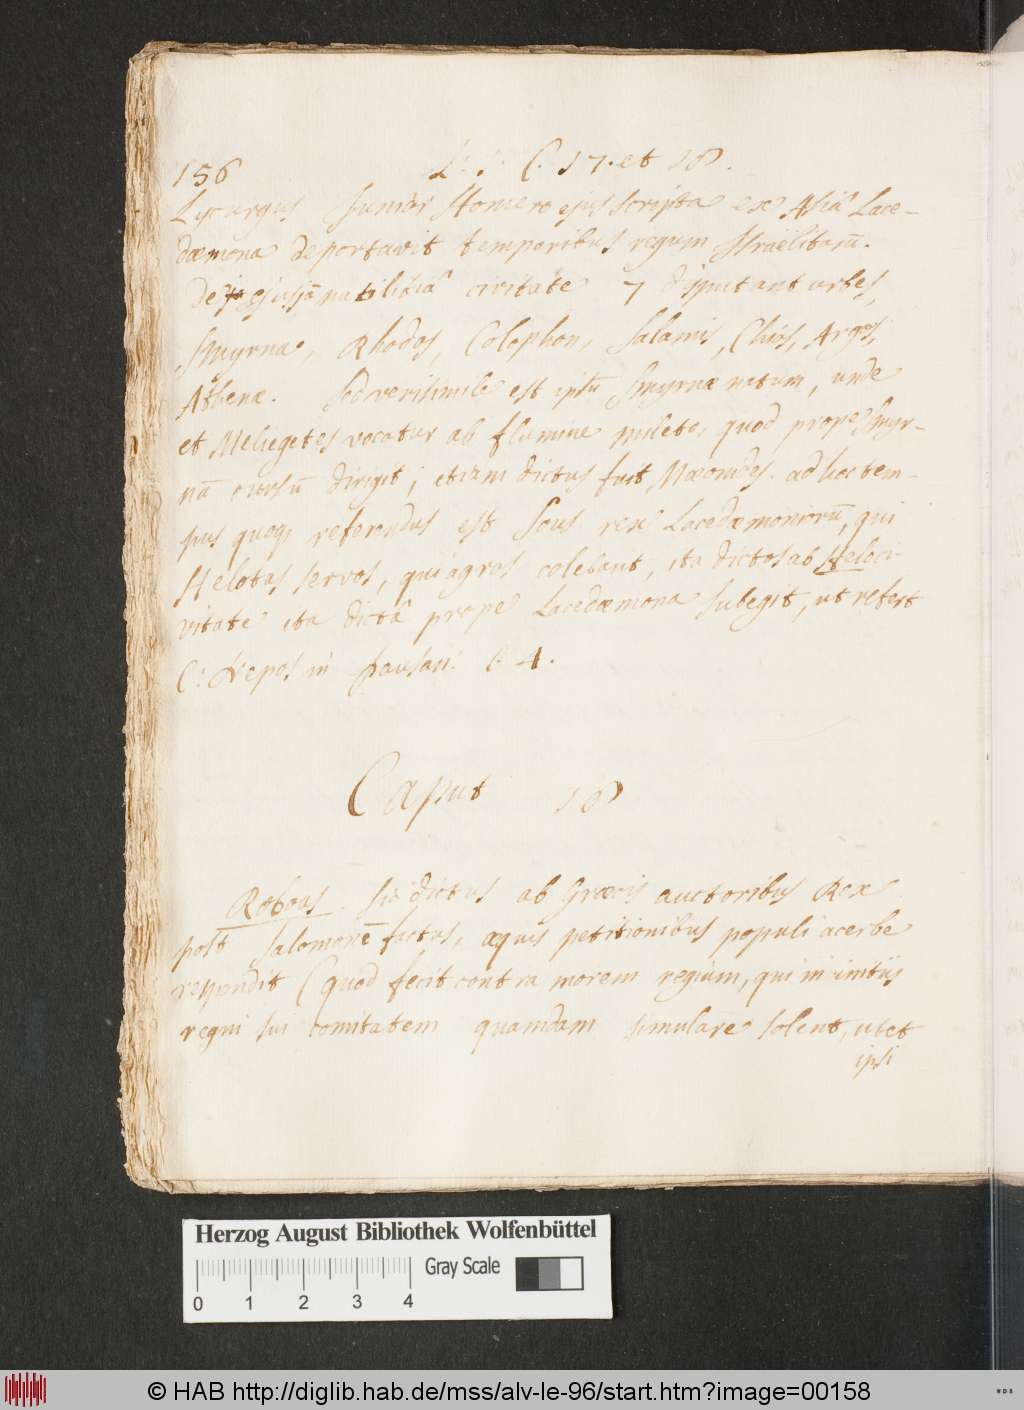 156 L. 1. C. 17. et 18.
Lycurgus Junior Homero ejus scripta ex Asiâ Lace-
dæmona deportavit temporibus regum Israëlitarū.
De ejus natilitiâ civitate 7 disputant urbes,
Smyrna, Rhodos, Colophon, Salamis, Chios, Argos,
Athenæ. Sed verisimile est ipsū Smyrnæ natum, unde
et Meliegetes vocatur ab flumine mileto, quod prope Smyr-
nā cursū dirigit; etiam dictus fuit Mæonides. ad hoc tem-
pus quoq referendus est Sous rex Lacedæmoniorū, qui
Helotas servos, qui agros colebant, ita dictos ab Helo ci-
vitate ita dictâ prope Lacedæmona subegit, ut refert
C: Nepos in Pausan: C. 4.
Caput 18
Roboas sic dictus ab Græcis auctoribus Rex
post Salomonē factus, æquis petitionibus populi acerbe
respondit (quod fecit contra morem regium, qui in initiis
regni sui comitatem quamdam simulare solent, ut et
ipsi
Herzog August Bibliothek Wolfenbüttel
Gray Scale
0 1 2 3 4
© HAB http://diglib.hab.de/mss/alv-le-96/start.htm?image=00158